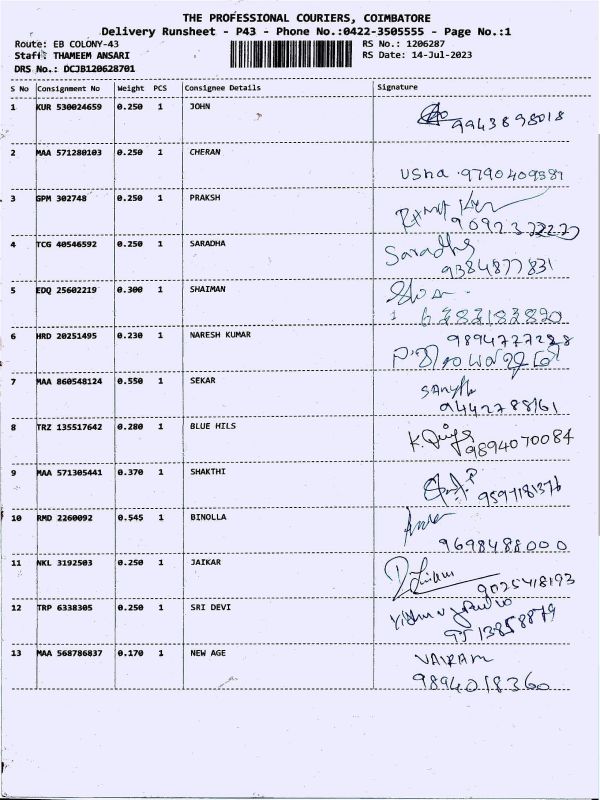 THE PROFESSIONAL COURIERS, COIMBATORE
Delivery Runsheet - P43 - Phone No.:0422-3505555 - Page No.:1
Route: EB COLONY-43 RS No.: 1206287
Staff: THAMEEM ANSARI RS Date: 14-Jul-2023
DRS No.: DCJB120628701
S No Consignment No Weight PCS Consignee Details Signature
1 KUR 530024659 0.250 1 JOHN
9943898018
2 MAA 571280103 0.250 1 CHERAN
Usha 9790409381
3 GPM 302748 0.250 1 PRAKSH
4 TCG 40546592 0.250 1 SARADHA Saradha
9384877831
5 EDQ 25602219 0.300 1 SHAIMAN
6382183820
6 HRD 20251495 0.230 1 NARESH KUMAR 9894777228
7 MAA 860548124 0.550 1 SEKAR
9442788161
8 TRZ 135517642 0.280 1 BLUE HILS
9894070084
9 MAA 571305441 0.370 1 SHAKTHI
9597181376
10 RMD 2260092 0.545 1 BINOLLA
9698488000
11 NKL 3192503 0.250 1 JAIKAR
9025418193
12 TRP 6338305 0.250 1 SRI DEVI
9513858879
13 MAA 568786837 0.170 1 NEW AGE VAIRAM
9894018360